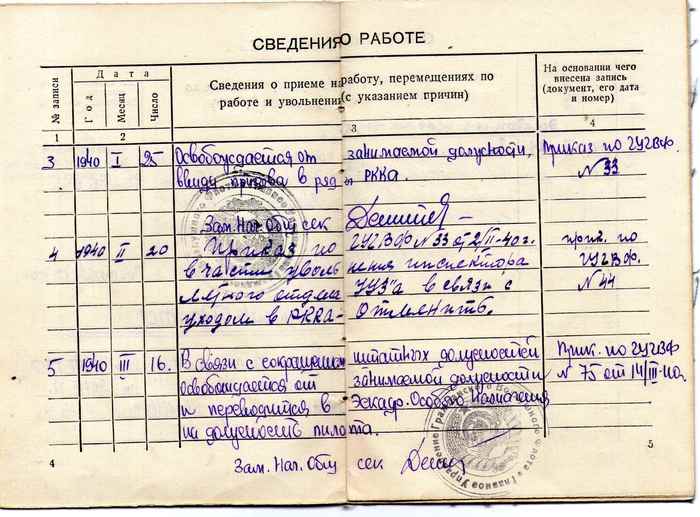 СВЕДЕНИЯ О РАБОТЕ
№ записи
Дата
Год
Месяц
Число
Сведения о приеме на работу, перемещениях по
работе и увольнении (с указанием причин)
На основании чего
внесена запись
(документ, его дата
и номер)
1 2 3 4
3 1940 I 25 Освобождается от занимаемой должности, Приказ по ГУГВФ
ввиду призыва в ряды РККА. № 33
Зам. Нач. Общ сек
4 1940 II 20 Приказ по ГУГВФ № 33 от 2/II-40 г. прик. по
в части увольнения инспектора ГУГВФ.
летного отдела УУЗ'а в связи с № 44
уходом в РККА - отменить.
5 1940 III 16. В связи с сокращением штатных должностей Прик. по ГУГВФ
освобождается от занимаемой должности № 75 от 14/III-40.
и переводится в Эскадр. Особого Назначения
на должность пилота.
4 5
Зам. Нач. Общ сек